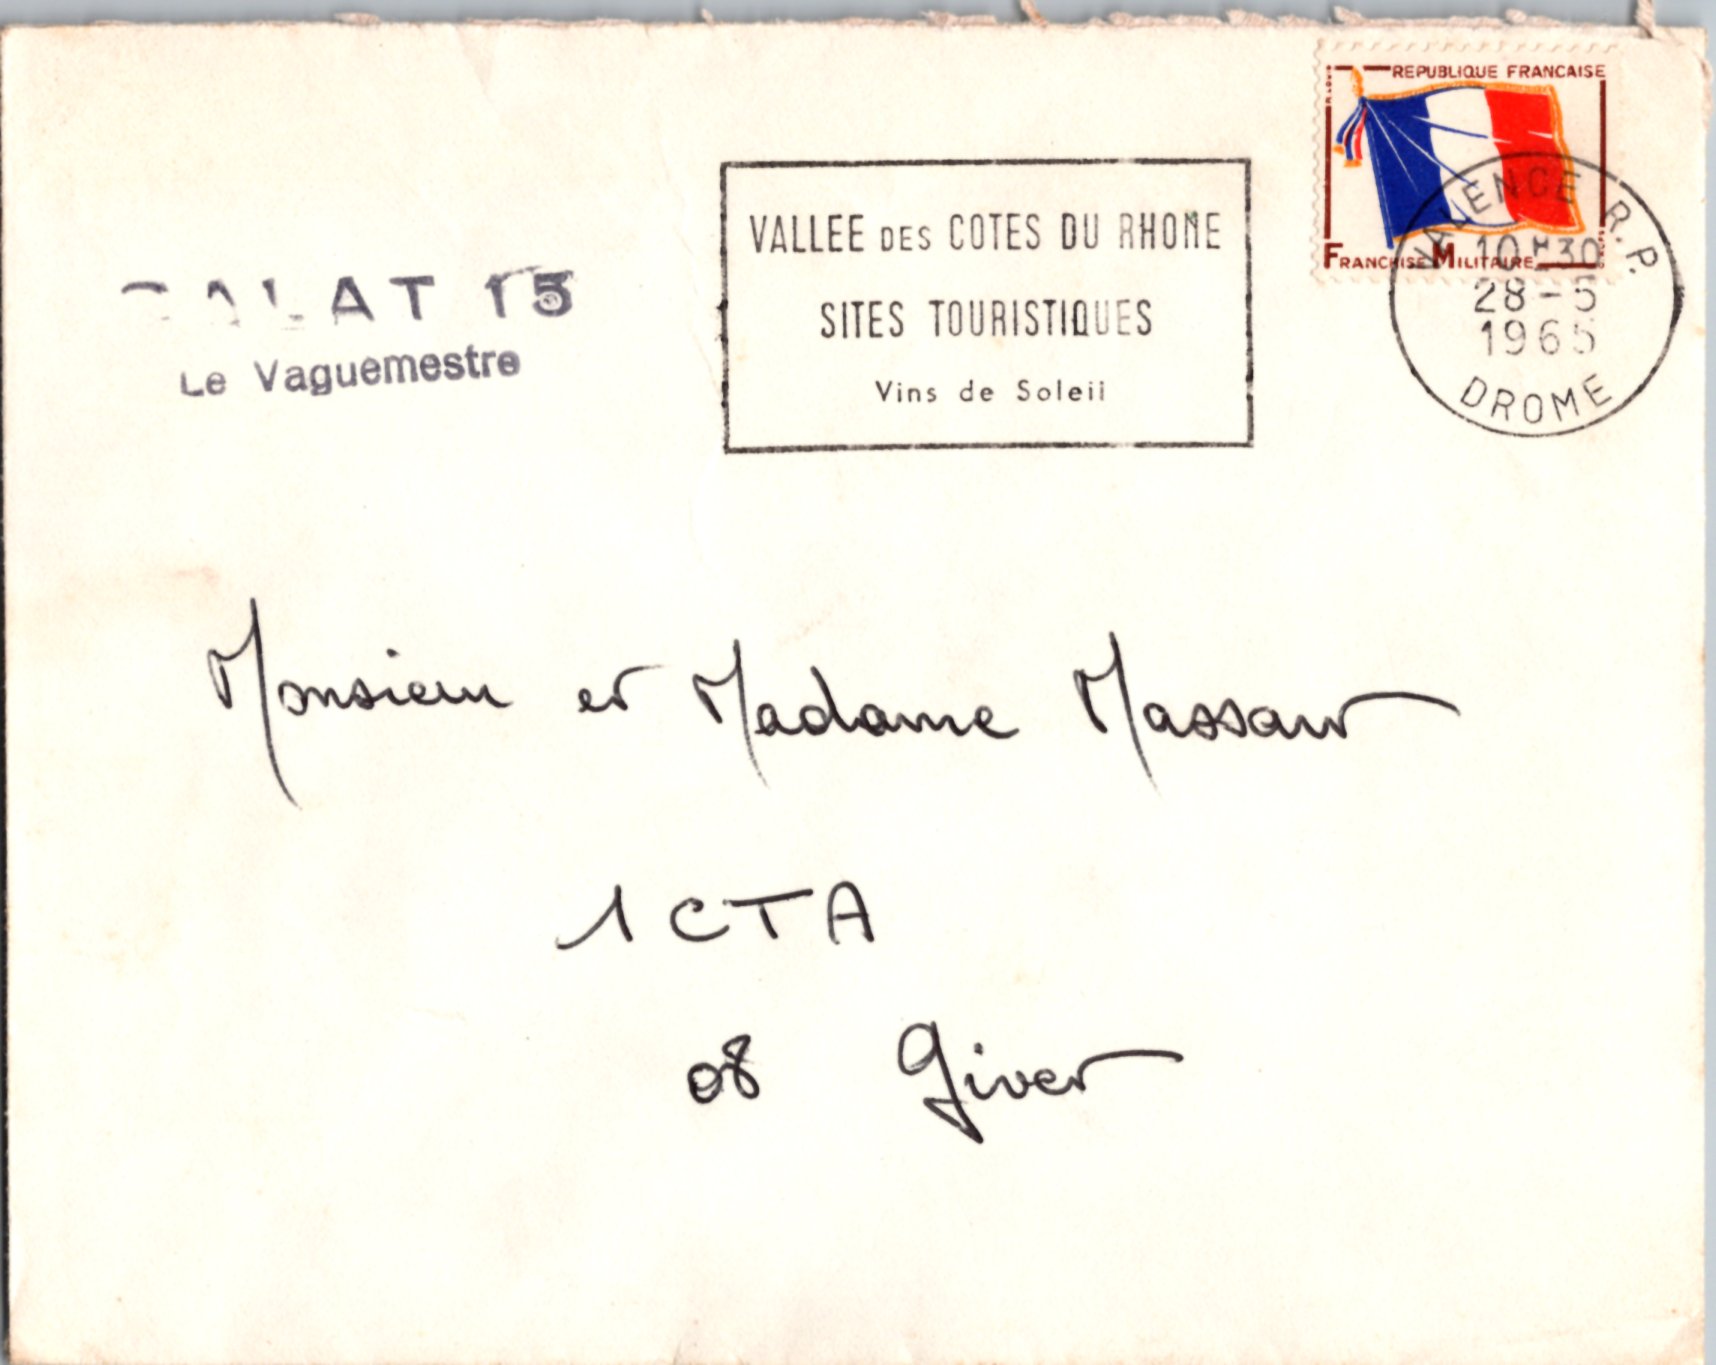 REPUBLIQUE FRANCAISE
FRANCHISE MILITAIRE
VALENCE R.P.
10H30
28-5
1965
DROME
VALLEE DES COTES DU RHONE
SITES TOURISTIQUES
Vins de Soleil
ALAT 15
Le Vaguemestre
Monsieur et Madame
1 CTA
08 Givet